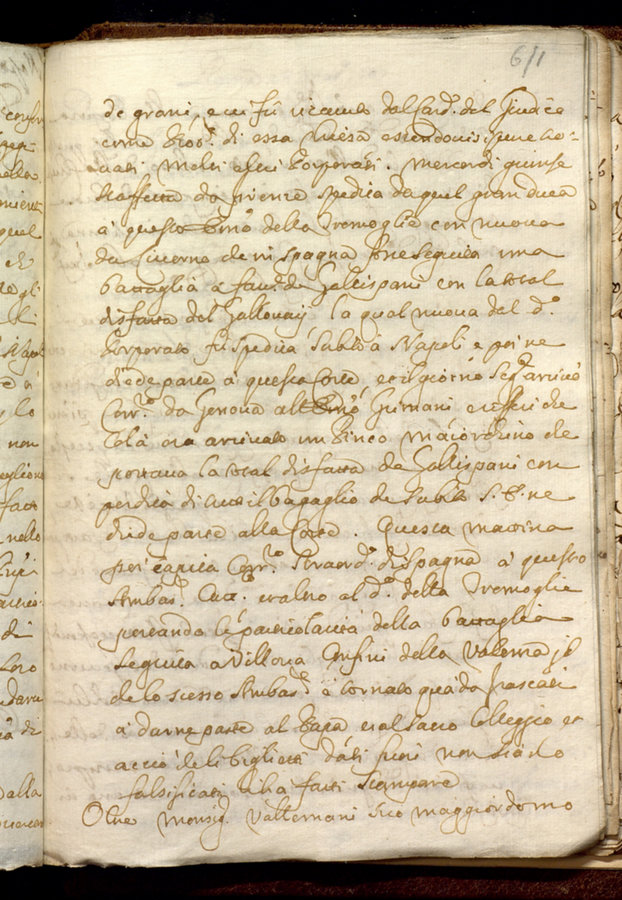 611
de grani, e vi fù ricevuto dal Card. del Giudice
come di essa Chiesa essendovisi pure tro-
uati molti altri Porporati. Mercordì giunse
staffetta da Firenze spedita da quel gran duca
a questo Emo della Tremoglie con nuova
da Livorno che in Spagna fosse seguita una
battaglia a fauore de Gallispani con la total
disfatta del Gallouay la qual nuova dal do.
Porporato fù spedita subito à Napoli e poi ne
diede parte à questa Corte, et il giorno seg.te arriuò
Corr.o da Genoua all Emo Grimani che
colà era arriuato un Pinco maiorchino che
portaua la total disfatta de Gallispani con
perdita di tutto il bagaglio de subito S. E. ne
diede parte alla Corte. Questa mattina
poi capitò Corr.o straord.o di Spagna à questo
Ambas.r Catt.o et altro al do. della Tremoglie
portando le particolarità della battaglia
seguita a Villena Confini della Valenza, il
che lo stesso Ambas.r è tornato quà da Frascati
à darne parte al Papa et al Sacro Colleggio et
acciò che li biglietti dati fuori non siano
falsificati li hà fatti stampare
Oltre Monsig. Valtemani suo maggiordomo